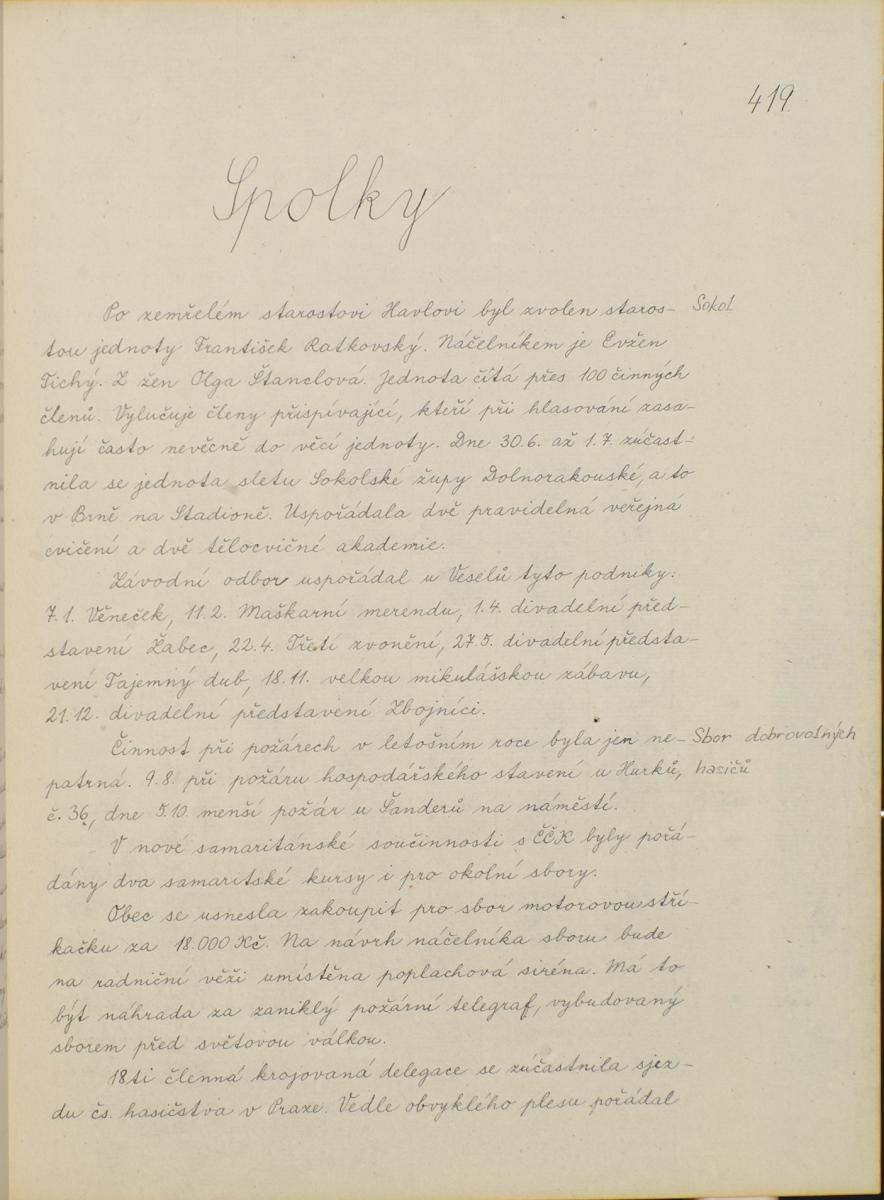 419
Spolky
Po zemřelém starostovi Havlovi byl zvolen staros- Sokol
tou jednoty František Ratkovský. Náčelníkem je Evžen
Tichý. Z žen Olga Štanclová. Jednota čítá přes 100 činných
členů. Vylučuje členy přispívající, kteří při hlasování zasa-
hují často nevěcně do věcí jednoty. Dne 30.6. až 1.7. zúčast-
nila se jednota sletu Sokolské župy Dolnorakouské, a to
v Brně na Stadioně. Uspořádala dvě pravidelná veřejná
cvičení a dvě tělocvičné akademie.
Závodní odbor uspořádal u Veselů tyto podniky:
7.1. Věneček, 11.2. Maškarní merendu, 1.4. divadelní před-
stavení Žabec, 22.4. Třetí zvonění, 27.5. divadelní předsta-
vení Tajemný dub, 18.11. velkou mikulášskou zábavu,
21.12. divadelní představení Zbojníci.
Činnost při požárech v letošním roce byla jen ne- Sbor dobrovolných
patrná. 9.8. při požáru hospodářského stavení u Hurků, hasičů
č. 36, dne 5.10. menší požár u Šanderů na náměstí.
V nové samaritánské součinnosti s ČČK byly pořá-
dány dva samaritské kursy i pro okolní sbory.
Obec se usnesla zakoupit pro sbor motorovou stří-
kačku za 18.000 Kč. Na návrh náčelníka sboru bude
na radniční věži umístěna poplachová siréna. Má to
být náhrada za zaniklý požární telegraf, vybudovaný
sborem před světovou válkou.
18ti členná krojovaná delegace se zúčastnila sjez-
du čs. hasičstva v Praze. Vedle obvyklého plesu pořádal